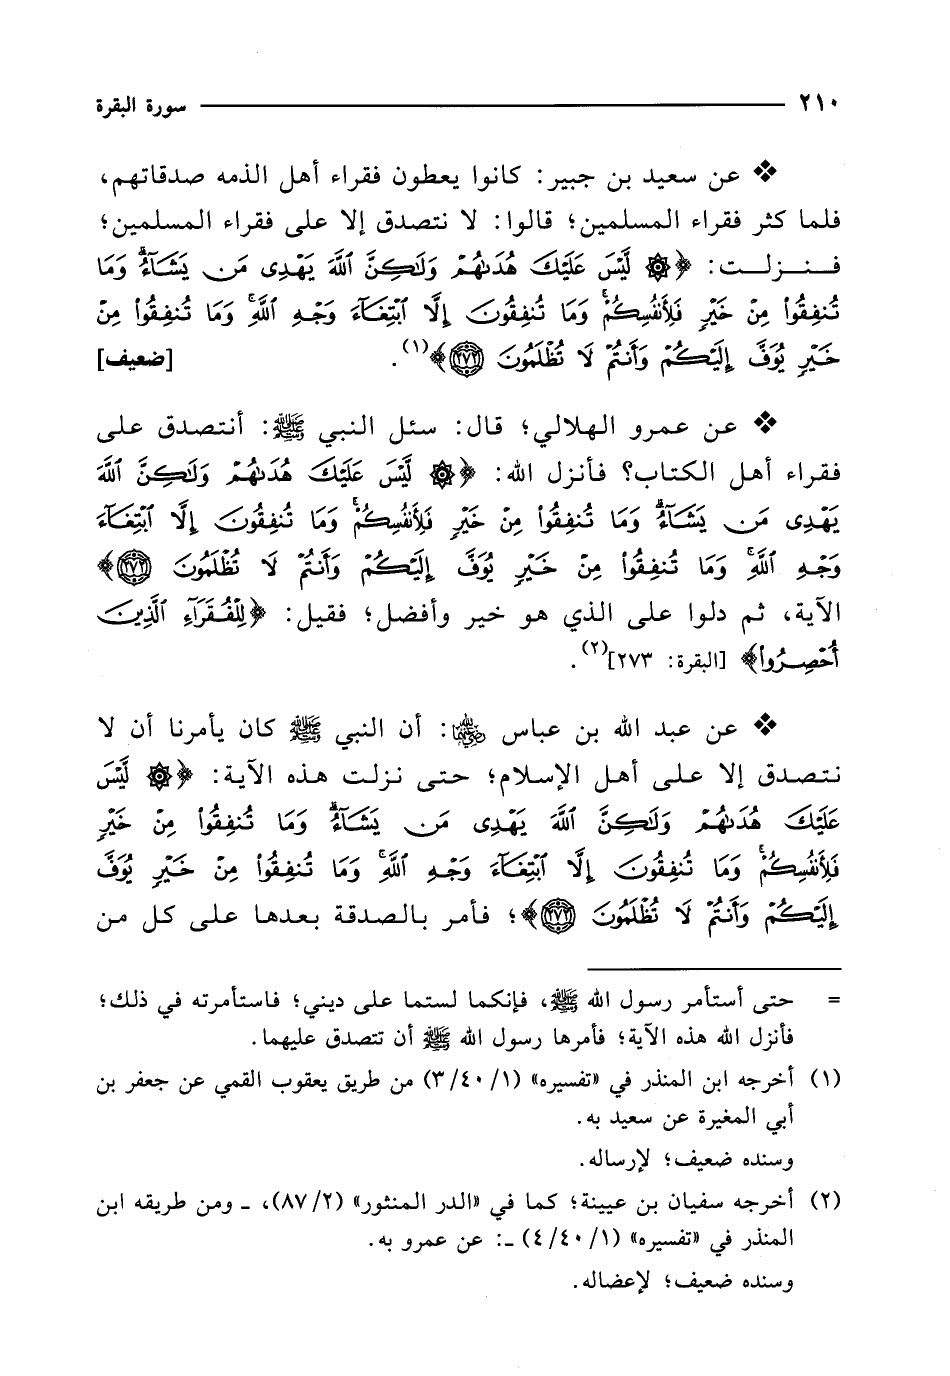 ٢١٠ سورة البقرة
❖ عن سعيد بن جبير: كانوا يعطون فقراء أهل الذمه صدقاتهم،
فلما كثر فقراء المسلمين؛ قالوا: لا نتصدق إلا على فقراء المسلمين؛
فـنـزلـت: ﴿۞ لَّيْسَ عَلَيْكَ هُدَىٰهُمْ وَلَٰكِنَّ ٱللَّهَ يَهْدِى مَن يَشَآءُۗ وَمَا
تُنفِقُوا۟ مِنْ خَيْرٍ فَلِأَنفُسِكُمْۚ وَمَا تُنفِقُونَ إِلَّا ٱبْتِغَآءَ وَجْهِ ٱللَّهِۚ وَمَا تُنفِقُوا۟ مِنْ
خَيْرٍ يُوَفَّ إِلَيْكُمْ وَأَنتُمْ لَا تُظْلَمُونَ ٢٧٢﴾(١). [ضعيف]
❖ عن عمرو الهلالي؛ قال: سئل النبي ﷺ: أنتصدق على
فقراء أهل الكتاب؟ فأنزل الله: ﴿۞ لَّيْسَ عَلَيْكَ هُدَىٰهُمْ وَلَٰكِنَّ ٱللَّهَ
يَهْدِى مَن يَشَآءُۗ وَمَا تُنفِقُوا۟ مِنْ خَيْرٍ فَلِأَنفُسِكُمْۚ وَمَا تُنفِقُونَ إِلَّا ٱبْتِغَآءَ
وَجْهِ ٱللَّهِۚ وَمَا تُنفِقُوا۟ مِنْ خَيْرٍ يُوَفَّ إِلَيْكُمْ وَأَنتُمْ لَا تُظْلَمُونَ ٢٧٢﴾
الآية، ثم دلوا على الذي هو خير وأفضل؛ فقيل: ﴿لِلْفُقَرَآءِ ٱلَّذِينَ
أُحْصِرُوا۟﴾ [البقرة: ٢٧٣](٢).
❖ عن عبد الله بن عباس رضي الله عنهما: أن النبي ﷺ كان يأمرنا أن لا
نتصدق إلا على أهل الإسلام؛ حتى نزلت هذه الآية: ﴿۞ لَّيْسَ
عَلَيْكَ هُدَىٰهُمْ وَلَٰكِنَّ ٱللَّهَ يَهْدِى مَن يَشَآءُۗ وَمَا تُنفِقُوا۟ مِنْ خَيْرٍ
فَلِأَنفُسِكُمْۚ وَمَا تُنفِقُونَ إِلَّا ٱبْتِغَآءَ وَجْهِ ٱللَّهِۚ وَمَا تُنفِقُوا۟ مِنْ خَيْرٍ يُوَفَّ
إِلَيْكُمْ وَأَنتُمْ لَا تُظْلَمُونَ ٢٧٢﴾؛ فأمر بالصدقة بعدها على كل من
= حتى أستأمر رسول الله ﷺ، فإنكما لستما على ديني؛ فاستأمرته في ذلك؛
فأنزل الله هذه الآية؛ فأمرها رسول الله ﷺ أن تتصدق عليهما.
(١) أخرجه ابن المنذر في «تفسيره» (٣/٤٠/١) من طريق يعقوب القمي عن جعفر بن
أبي المغيرة عن سعيد به.
وسنده ضعيف؛ لإرساله.
(٢) أخرجه سفيان بن عيينة؛ كما في «الدر المنثور» (٨٧/٢)، ـ ومن طريقه ابن
المنذر في «تفسيره» (٤/٤٠/١) ـ: عن عمرو به.
وسنده ضعيف؛ لإعضاله.